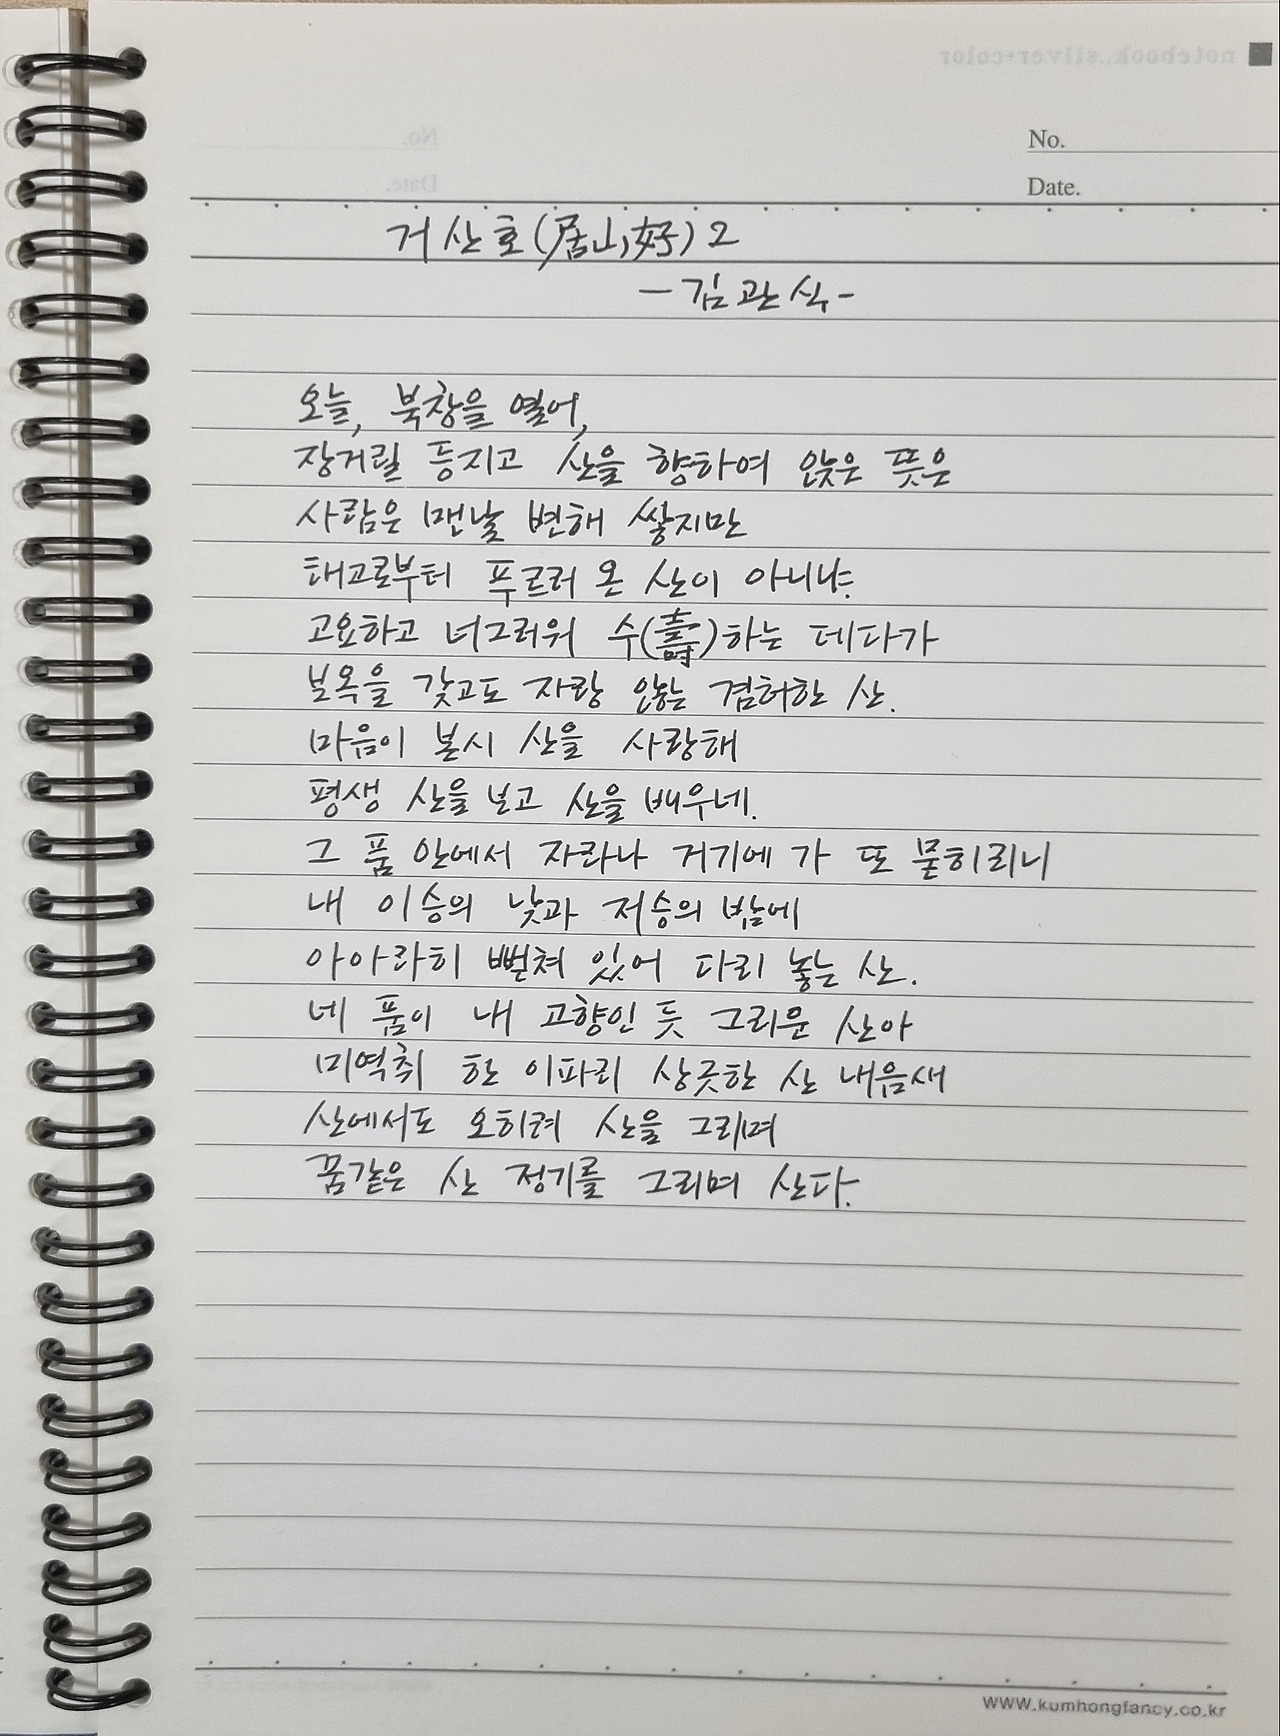 notebook..silver+color
No.
Date.
거산호(居山好) 2
-김관식-
오늘, 북창을 열어,
장거릴 등지고 산을 향하여 앉은 뜻은
사람은 맨날 변해 쌓지만
태고로부터 푸르러 온 산이 아니냐.
고요하고 너그러워 수(壽)하는 데다가
보옥을 갖고도 자랑 않는 겸허한 산.
마음이 본시 산을 사랑해
평생 산을 보고 산을 배우네.
그 품 안에서 자라나 거기에 가 또 묻히리니
내 이승의 낮과 저승의 밤에
아아라히 뻗쳐 있어 다리 놓는 산.
네 품이 내 고향인 듯 그리운 산아
미역취 한 이파리 상긋한 산 내음새
산에서도 오히려 산을 그리며
꿈같은 산 정기를 그리며 산다.
www.kumhongfancy.co.kr